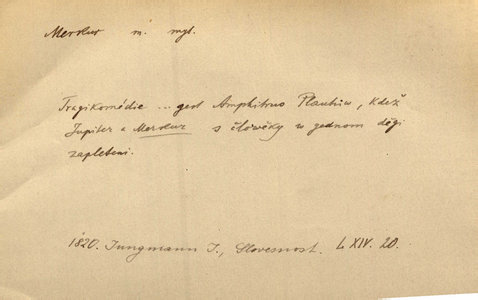 Merkur m. myt.
Tragikomédie ... gest Amphitruo Plautůw, kdež
Jupiter a Merkur s člowěky w gednom děgi
zapleteni.
1820. Jungmann J., Slovesnost. L XIV. 20.